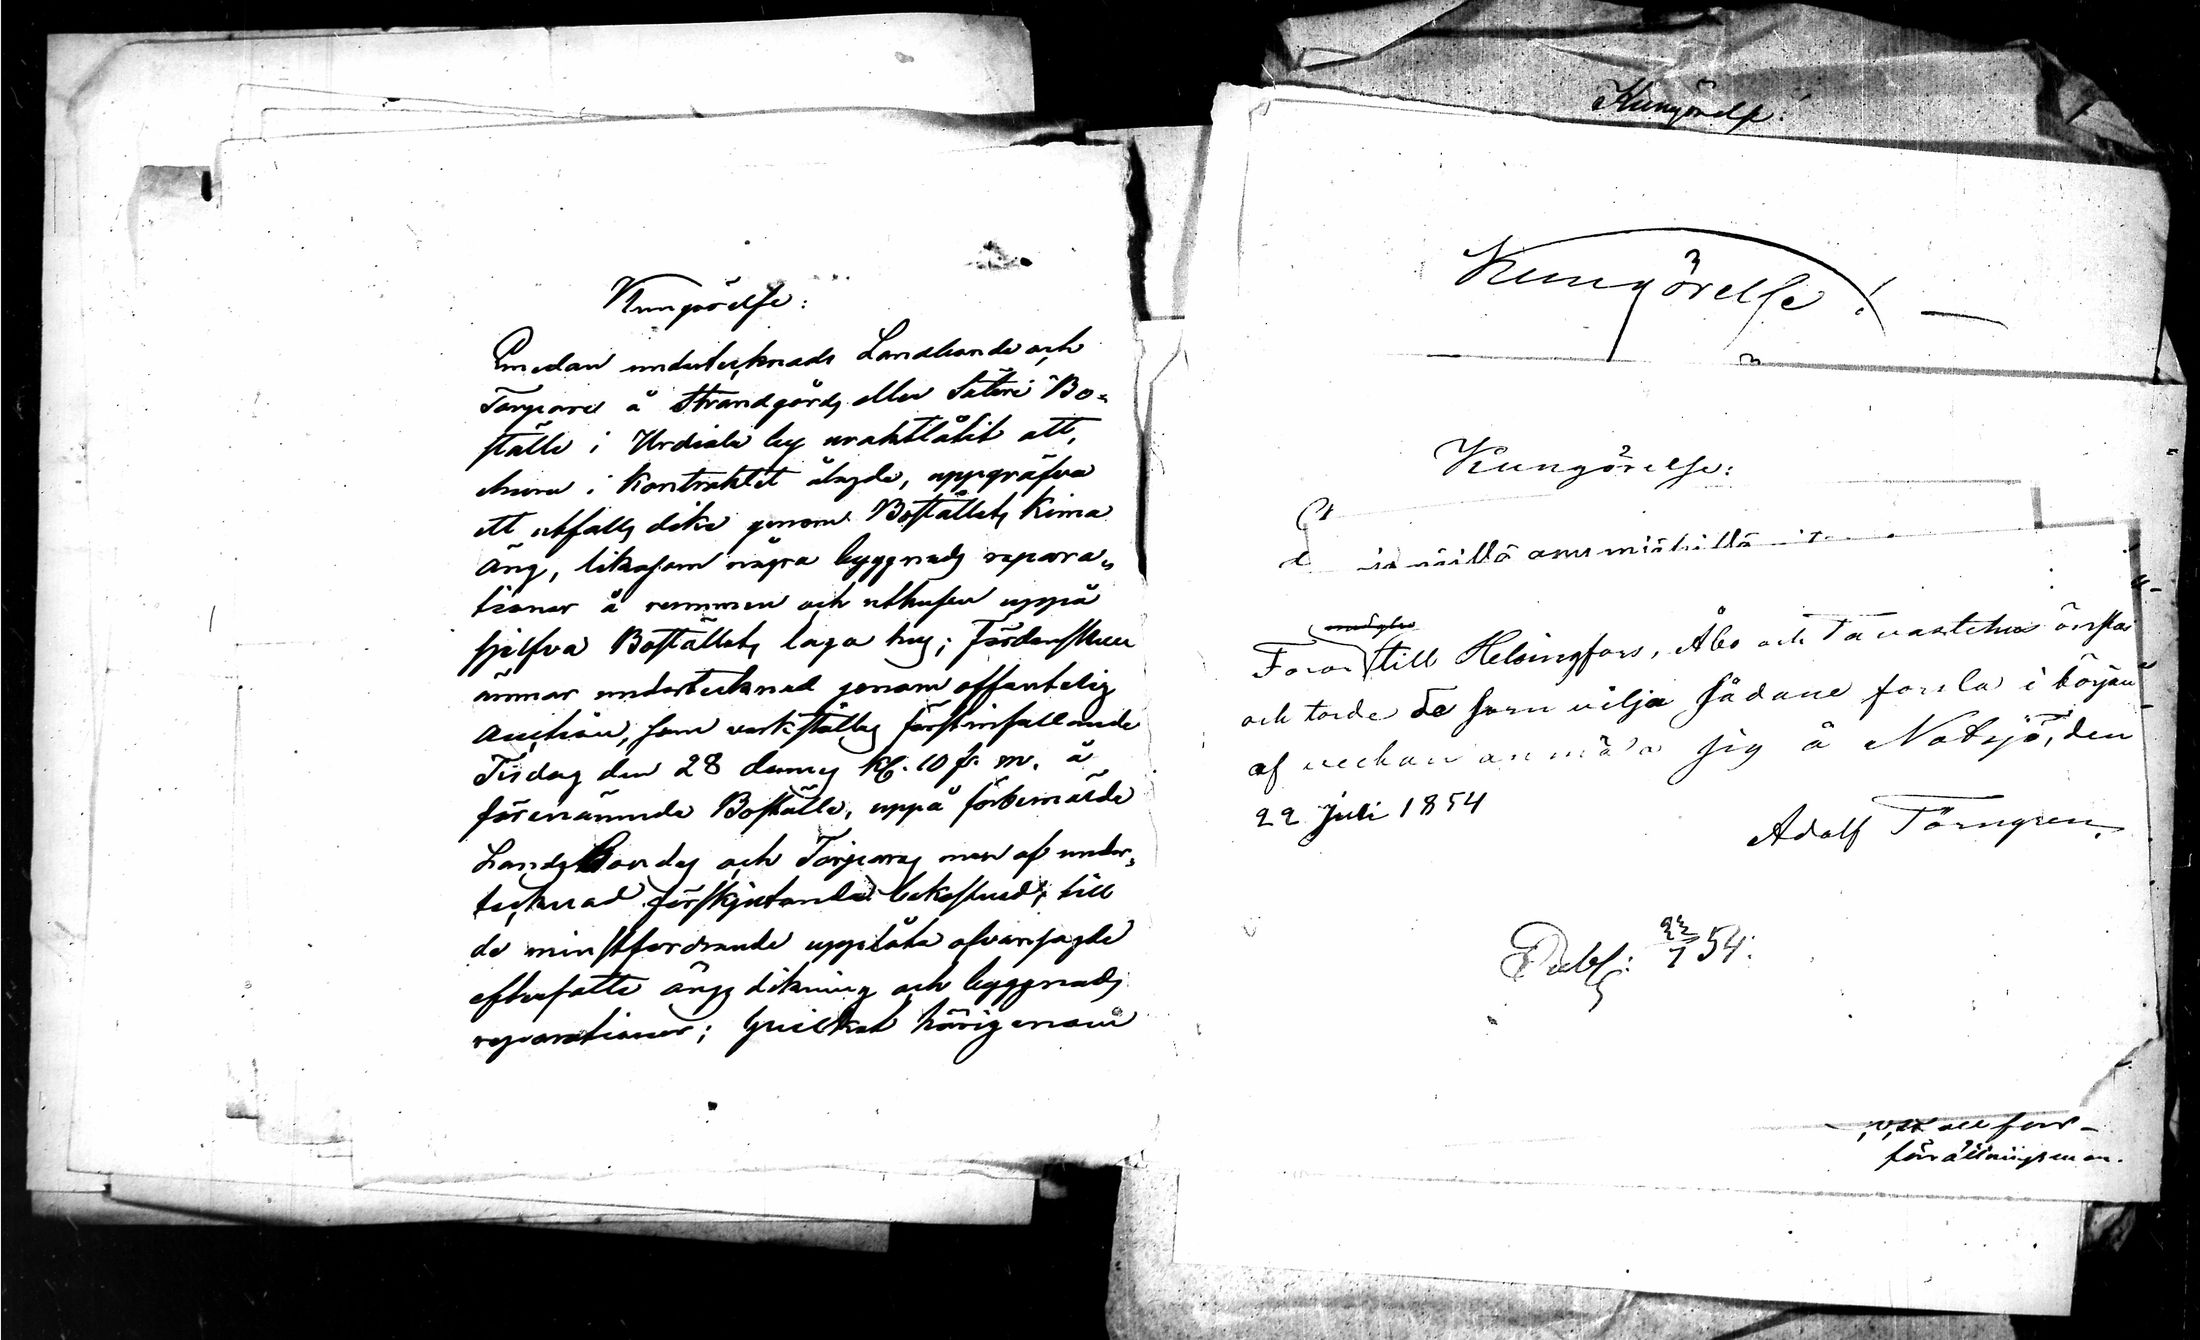 Kungörelse:
Emedan undertecknads Landbonde och
Torpare å Strandgårds eller Säteri Bo-
ställe i Urdiala by uraktlåtit att,
dem i Kontraktet ålagde, uppgräfva
ett utfalls dike genom Boställets Kima
äng, likasom några byggnads repara-
tioner å rummen och uthusen uppå
sjelfva Boställets laga hus; Fördenskull
ämnar undertecknad genom offentelig
Auction, som verkställes förstinfallande
Tisdag den 28 dennes Kl. 10 f. m. å
förenämnde Boställe, uppå förbemälde
Lands Bondes och Torpares men af under-
tecknad förskjutande bekostnad, till
de minstfordrande upplåta ofvansagde
eftersatte ängsdikning och byggnads
reparationer; hvilket härigenom
Kungörelse:
Kungörelse!
Kungörelse:
Foror till Helsingfors, Åbo och Tavastehus önskas
och torde de som vilja sådane forsla i början
af veckan anmäla sig å Notsjö, den
22 Juli 1854
Adolf Törngren.
Publ: 23/7 54:
förrättningsman.